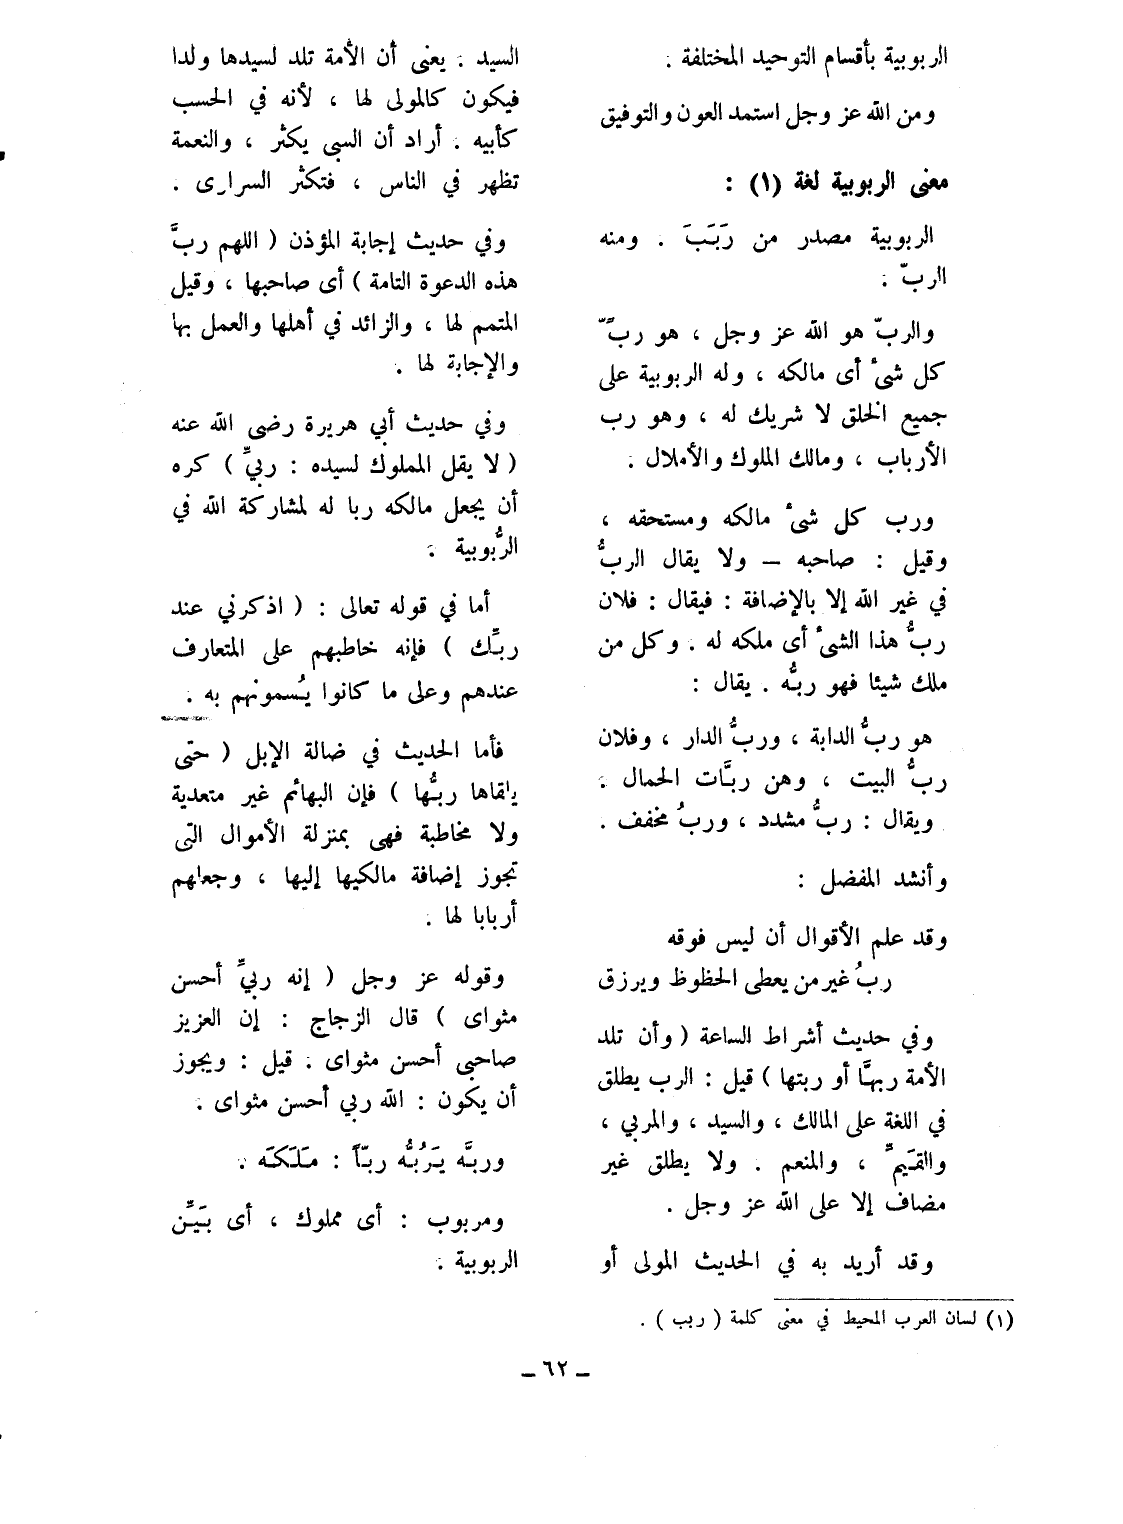 الربوبية بأقسام التوحيد المختلفة .
ومن الله عز وجل استمد العون والتوفيق
معنى الربوبية لغة (١) :
الربوبية مصدر من رَبَبَ . ومنه
الربّ .
والربّ هو الله عز وجل ، هو ربّ
كل شىٔ أى مالكه ، وله الربوبية على
جميع الخلق لا شريك له ، وهو رب
الأرباب ، ومالك الملوك والأملال .
ورب كل شىٔ مالكه ومستحقه ،
وقيل : صاحبه — ولا يقال الربُّ
في غير الله إلا بالإضافة : فيقال : فلان
ربُّ هذا الشىٔ أى ملكه له . وكل من
ملك شيئا فهو ربُّه . يقال :
هو ربُّ الدابة ، وربُّ الدار ، وفلان
ربُّ البيت ، وهن ربَّات الحمال .
ويقال : ربُّ مشدد ، وربُ مخفف .
وأنشد المفضل :
وقد علم الأقوال أن ليس فوقه
ربُ غير من يعطى الحظوظ ويرزق
وفي حديث أشراط الساعة ( وأن تلد
الأمة ربهَّا أو ربتها ) قيل : الرب يطلق
في اللغة على المالك ، والسيد ، والمربي ،
والقَيِّم ، والمنعم . ولا يطلق غير
مضاف إلا على الله عز وجل .
وقد أريد به في الحديث المولى أو
السيد . يعنى أن الأمة تلد لسيدها ولدا
فيكون كالمولى لها ، لأنه في الحسب
كأبيه . أراد أن السبى يكثر ، والنعمة
تظهر في الناس ، فتكثر السرارى .
وفي حديث إجابة المؤذن ( اللهم ربَّ
هذه الدعوة التامة ) أى صاحبها ، وقيل
المتمم لها ، والزائد في أهلها والعمل بها
والإجابة لها .
وفي حديث أبي هريرة رضى الله عنه
( لا يقل المملوك لسيده : ربيِّ ) كره
أن يجعل مالكه ربا له لمشاركة الله في
الرُّبوبية .
أما في قوله تعالى : ( اذكرني عند
ربِّك ) فإنه خاطبهم على المتعارف
عندهم وعلى ما كانوا يُسمونهم به .
فأما الحديث في ضالة الإبل ( حتى
يلقاها ربُّها ) فإن البهائم غير متعدية
ولا مخاطبة فهى بمنزلة الأموال التى
تجوز إضافة مالكيها إليها ، وجعلهم
أربابا لها .
وقوله عز وجل ( إنه ربيِّ أحسن
مثواى ) قال الزجاج : إن العزيز
صاحبى أحسن مثواى . قيل : ويجوز
أن يكون : الله ربي أحسن مثواى .
وربَّه يَرُبُّه ربّاً : مَلَكَه .
ومربوب : أى مملوك ، أى بَيِّن
الربوبية .
(١) لسان العرب المحيط في معنى كلمة ( ربب ) .
— ٦٢ —